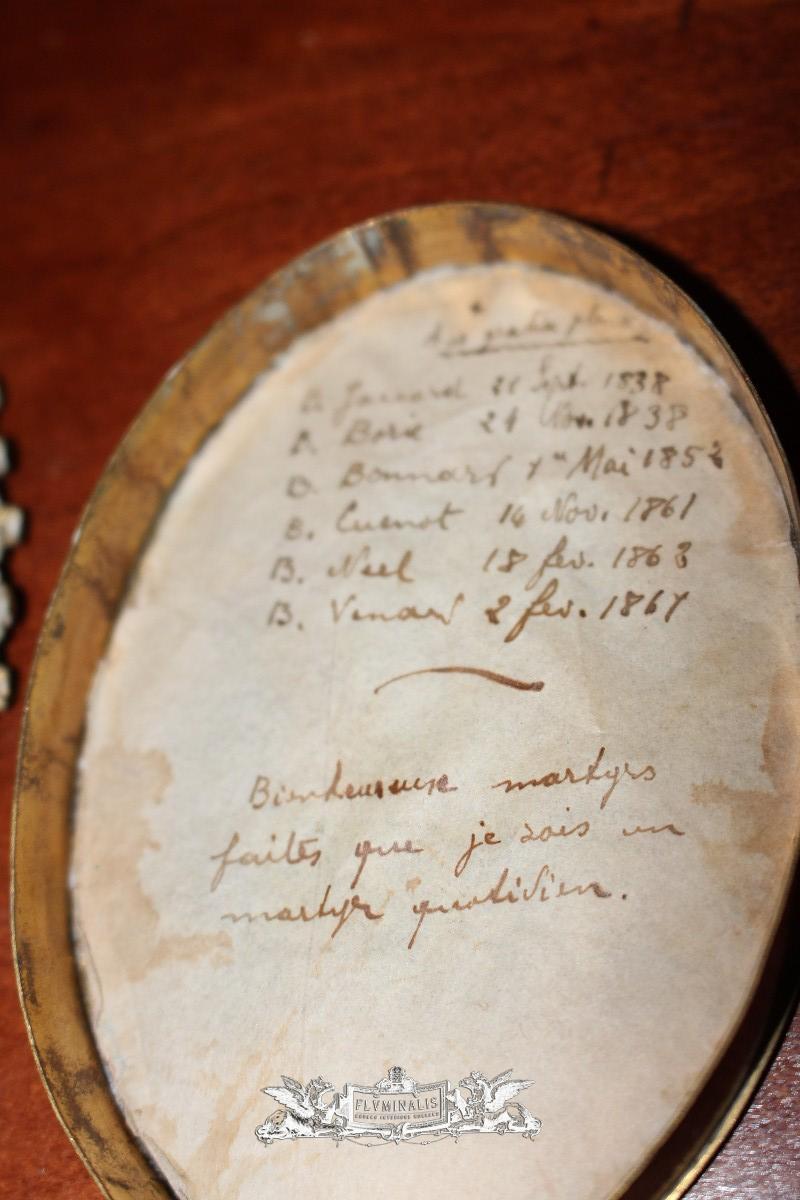 B. Jaccard 21 Sept. 1838
B. Borie 24 Nov. 1838
B. Bonnard 1er Mai 1852
B. Cuenot 14 Nov. 1861
B. Neel 18 fev. 1862
B. Venard 2 fev. 1861
Bienheureuse martyrs
faites que je sois un
martyr quotidien.
FLVMINALIS